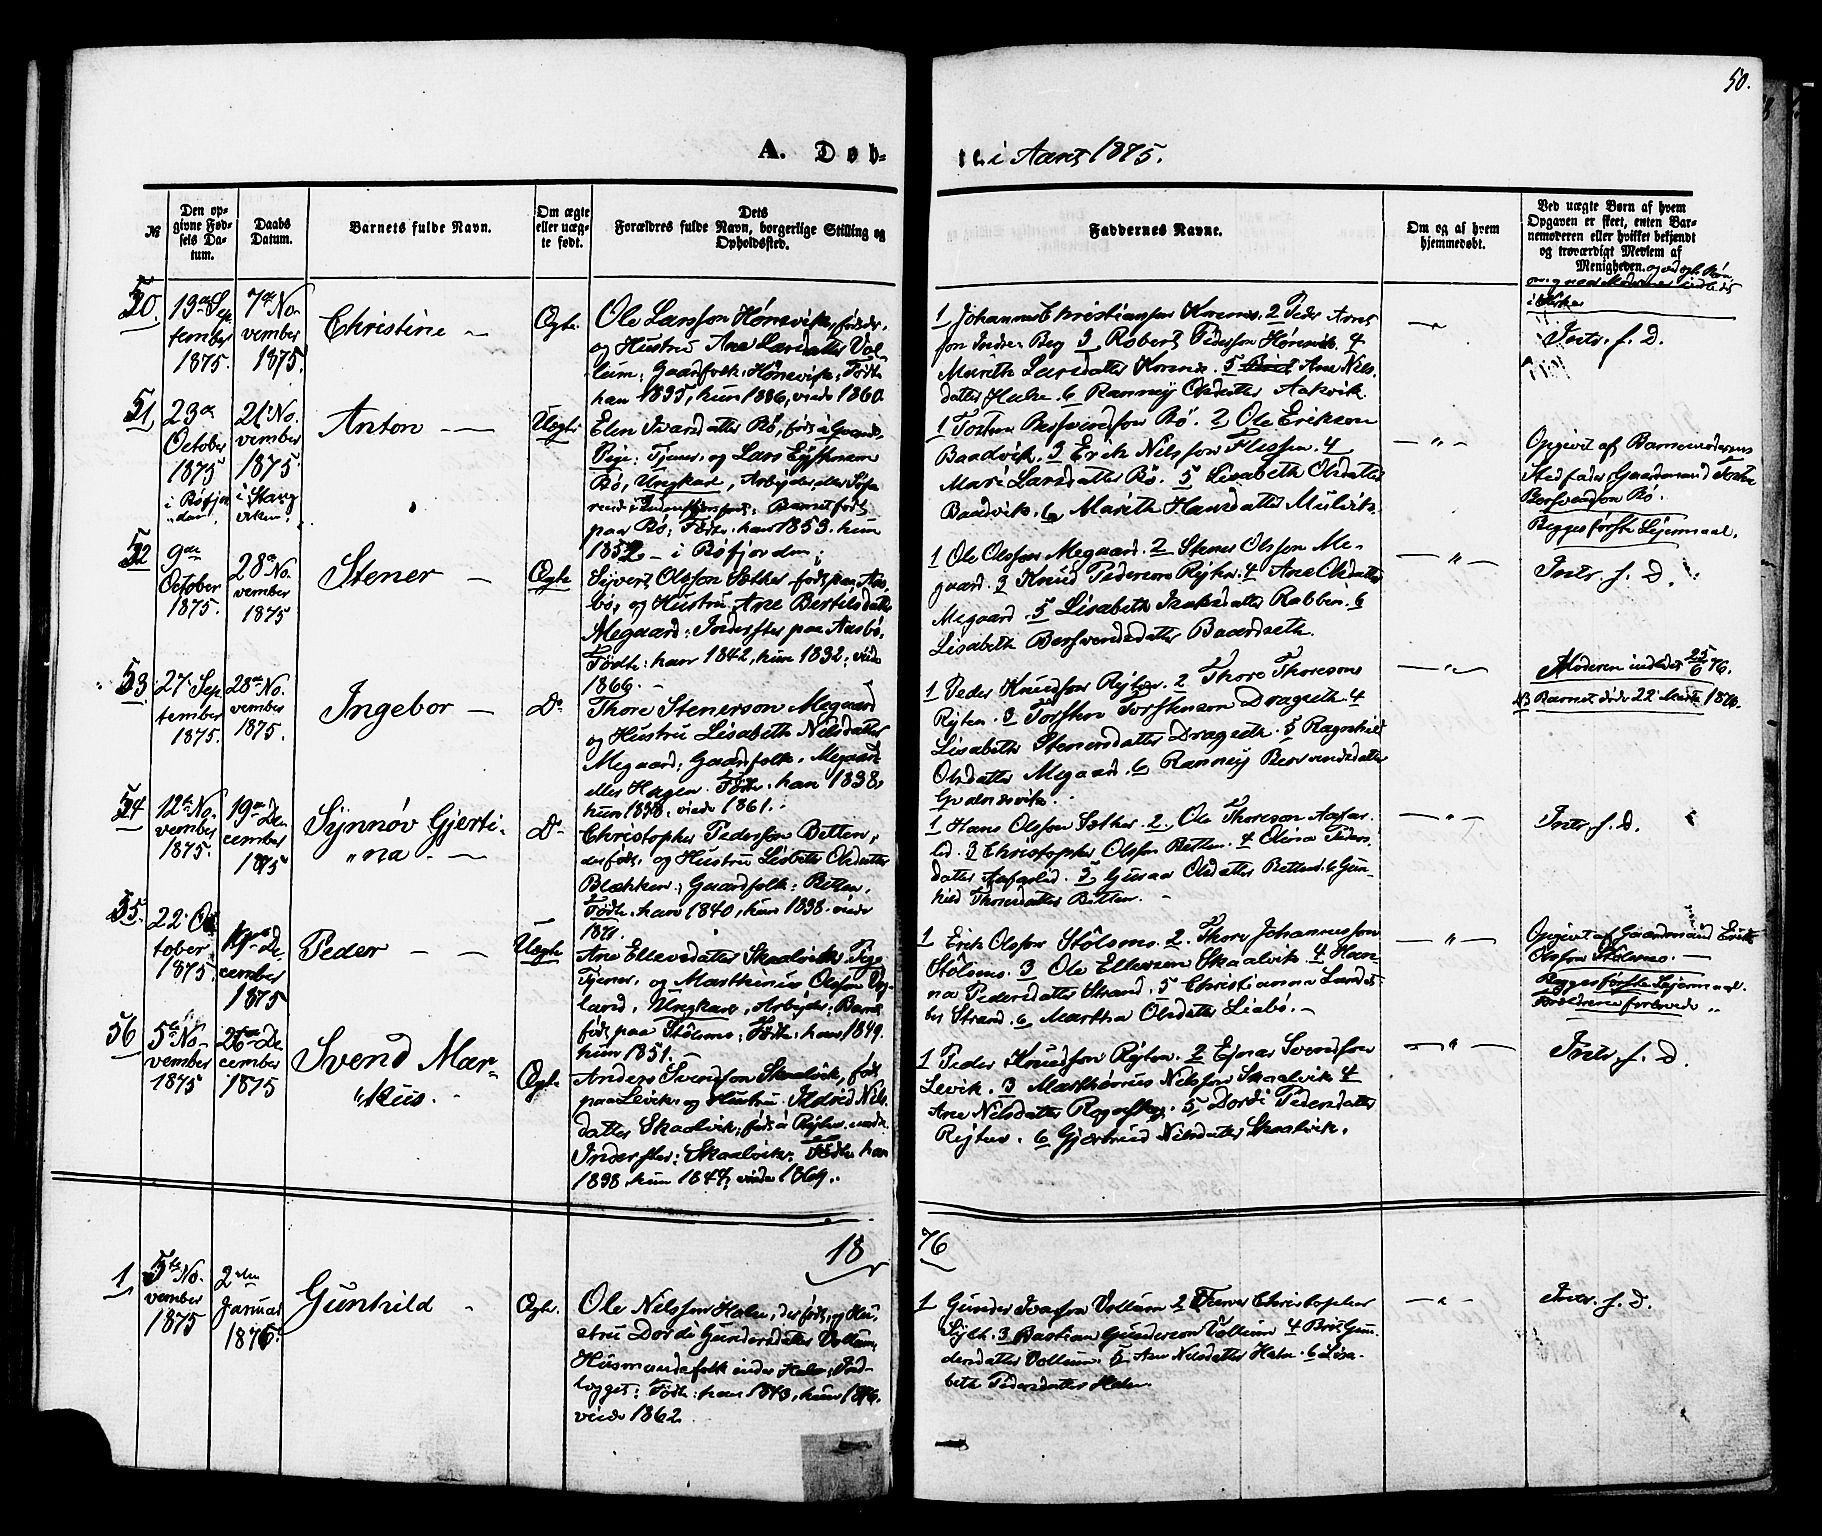 50.
A. Døb-
te i Aaret 1875.
№
Den op-
givne Fød-
sels Da-
tum.
Daabs
Datum.
Barnets fulde Navn.
Om ægte
eller uæg-
te født.
Dets
Forældres fulde Navn, borgerlige Stilling og
Opholdssted.
Faddernes Navne.
Om og af hvem
hjemmedøbt.
Ved uægte Børn af hvem
Opgaven er skeet, enten Bar-
nemoderen eller hvilket bekjendt
og troværdigt Medlem af
Menigheden.
50.
19de Sep
tember
1875.
7de No-
vember
1875.
Christine
Ægte
Ole Larsson Hønsvik, føds der,
og Hustru Ane Larsdatter Vol-
lum; Gaardfolk: Hønsvik; Født:
han 1835, hun 1836, viede 1860
1 Johannes Christiansson Korsnes. 2 Peder Arnt
son Indre-Beg 3 Robert Pederson Hønsvik. 4
Marith Larsdatter Korsnes. 5 Ane Nils-
datter Halse. 6 Ranney Olsdatter Aakvik.
Intr. f. D.
51
23de
October
1875
i Bøfjor
den.
21de No-
vember
1875.
i Stang
viken.
Anton
Uægte
Elen Ivarsdatter Bø, føds
Pige: Tjener, og Lars
Bø, Ungkar, Arbejder, eller
Barnet føds
paa Bø; Født: han 1853. hun
1852 - i Bøfjorden;
1 Bersvendson Bø. 2 Ole Erikson
Baadvik. 3 Erik Nilsson Flessen. 4
Mari Larsdatter Bø. 5 Lisabeth Olsdatter
Baadvik. 6 Marith Hansdatter
Opgivet af Barnemoderens
Stedfader, Gaardmand
Bersvendson Bø.
Begges første Lejermaal.
52
9de
October
1875.
28de No-
vember
1875
Stener
Ægte
Sivert Olsson Sæther, føds paa Aas-
bø, og Hustru Ane Bertelsdatter
Megaard: Inderster paa Aasbø,
Født: han 1842, hun 1832; viede
1866.
1 Ole Olsson Megaard. 2 Stener Olsson Me-
gaard. 3 Knud Pederson Røjten. 4 Ane Olsdatter
Megaard. 5 Lisabeth Isaksdatter Rabben. 6
Lisabeth Bersvendsdatter Baardseth.
Intr. f. D.
53.
27. Sep
tember
1875.
28de No-
vember
1875.
Ingebor
Do
Thore Stenerson Megaard
og Hustru Lisabeth Nilsdatter
Megaard; Gaardfolk. Megaard
eller Hagen. Født: han 1838,
hun 1838, viede 1861.
1 Peder Knudson Røjten. 2 Thore Thoreson
Røjten. 3 Torsten Torstenson Drageth. 4
Lisabeth Stenersdatter Drageth. 5 Ragnhild
Olsdatter Megaard. 6 Ranney Bersvendsdatter
Moderen indledet 25/6 76.
NB Barnet døde 22 Marts 1876.
54
12te No-
vember
1875.
19de De-
cember
1875
Synnøv Gjerti-
"na
Do
Christopher Pederson Betten,
der føds, og Hustru Lisbeth Olsdatter
Blækken; Gaardfolk: Betten.
Født: han 1840, hun 1838. viede
1871.
1 Hans Olsson Sæther. 2. Ole Thoreson Aafar-
lid. 3 Christopher Olsson Betten. 4 Olina Peders-
datter Aafarlid. 5 Guraa Olsdatter Betten. 6 Gun-
hild Thoresdatter Betten.
Intr. f. D.
55.
22. Oc
tober
1875.
19de De-
cember
1875
Peder
Uægte
Ane Ellevsdatter Skaalvik Pige
Tjener, og Marthinus Olsson
land, Ungkar, Arbejder; Barnet
føds paa Stölsmo; Født: han 1849.
hun 1851.
1 Erik Olsson Stölsmo. 2. Thore Johannesson
Stölsmo. 3 Ole Ellevsen Skaalvik. 4 Han-
na Pedersdatter Strand. 5 Christianna
Strand. 6 Martha Olsdatter Liabø.
Opgivet af Gaardmand Erik
Olsson Stölsmo.
Begges første Lejermaal.
Forældrene forlovede
56
5te No-
vember
1875
26de De-
cember
1875
Svend Mar-
"kus.
Ægte
Anders Svendson Skaalvik, føds
paa Levik, og Hustru Ildrid Nils-
datter Skaalvik; føds à Røjten
Inderster: Skaalvik; Født: han
1838, hun 1847; viede 1869.
1 Peder Knudson Røjten. 2 Ejnar Svendson
Levik. 3 Marthinus Nilsson Skaalvik 4
Ane Nilsdatter 5 Dordi Pedersdatter
Røjten. 6 Gjertrud Nilsdatter Skaalvik.
Intr. f. D.
18
76
1
5te No-
vember
1875
2den
Januar
1876.
Gunhild
Ægte.
Ole Nilsson Halse, der føds, og Hu-
stru Dordi Gundersdatter Vollum,
Husmandsfolk under Halse, Ind-
lægget; Født: han 1843, hun 1846.
viede 1862.
1 Gunder Ivarson Vollum 2 Christopher
3 Bastian Gunderson Vollum 4 Brit Gun-
dersdatter Vollum. 5 Ane Nilsdatter Halse. 6 Lisa-
beth Pedersdatter Halse.
Intr. f. D.